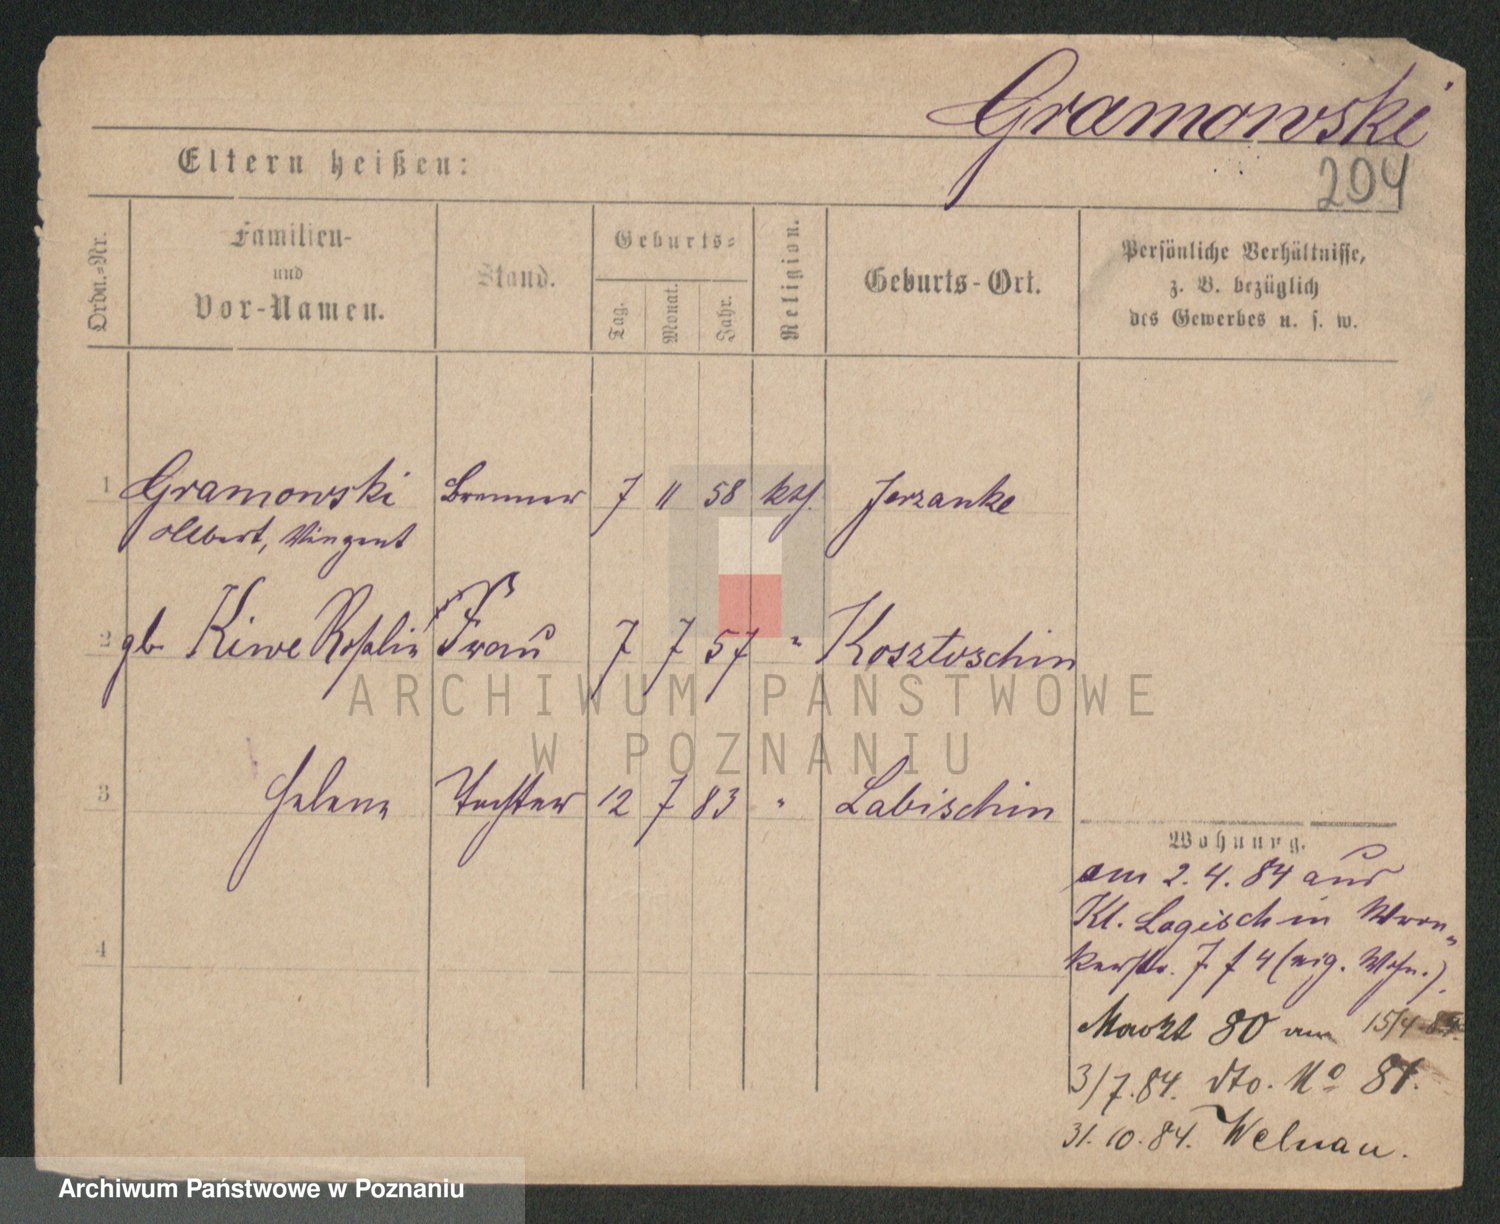 Gramowski
204
Eltern heißen:
Ordn.=Nr.
Familien-
und
Vor-Namen.
Stand.
Geburts=
Tag.
Monat.
Jahr.
Religion.
Geburts-Ort.
Persönliche Verhältnisse,
z. B. bezüglich
des Gewerbes u. s. w.
1 Gramowski Brenner 7 11 58 kth. Jerzanke
Albert, Vinzent
2 gb. Kiwe Rosalie Frau 7 7 57 " Kosztoschin
3 Helene Tochter 12 7 83 " Labischin
4
Wohnung.
am 2. 4. 84 aus
Kl. Lagischin Wron„
kerstr. 7 f 4 (eig. Wohn.).
Markt 80 am 15/4 84.
3/7.84. dto. No 81.
31. 10. 84. Welnau.
ARCHIWUM PAŃSTWOWE
W POZNANIU
Archiwum Państwowe w Poznaniu